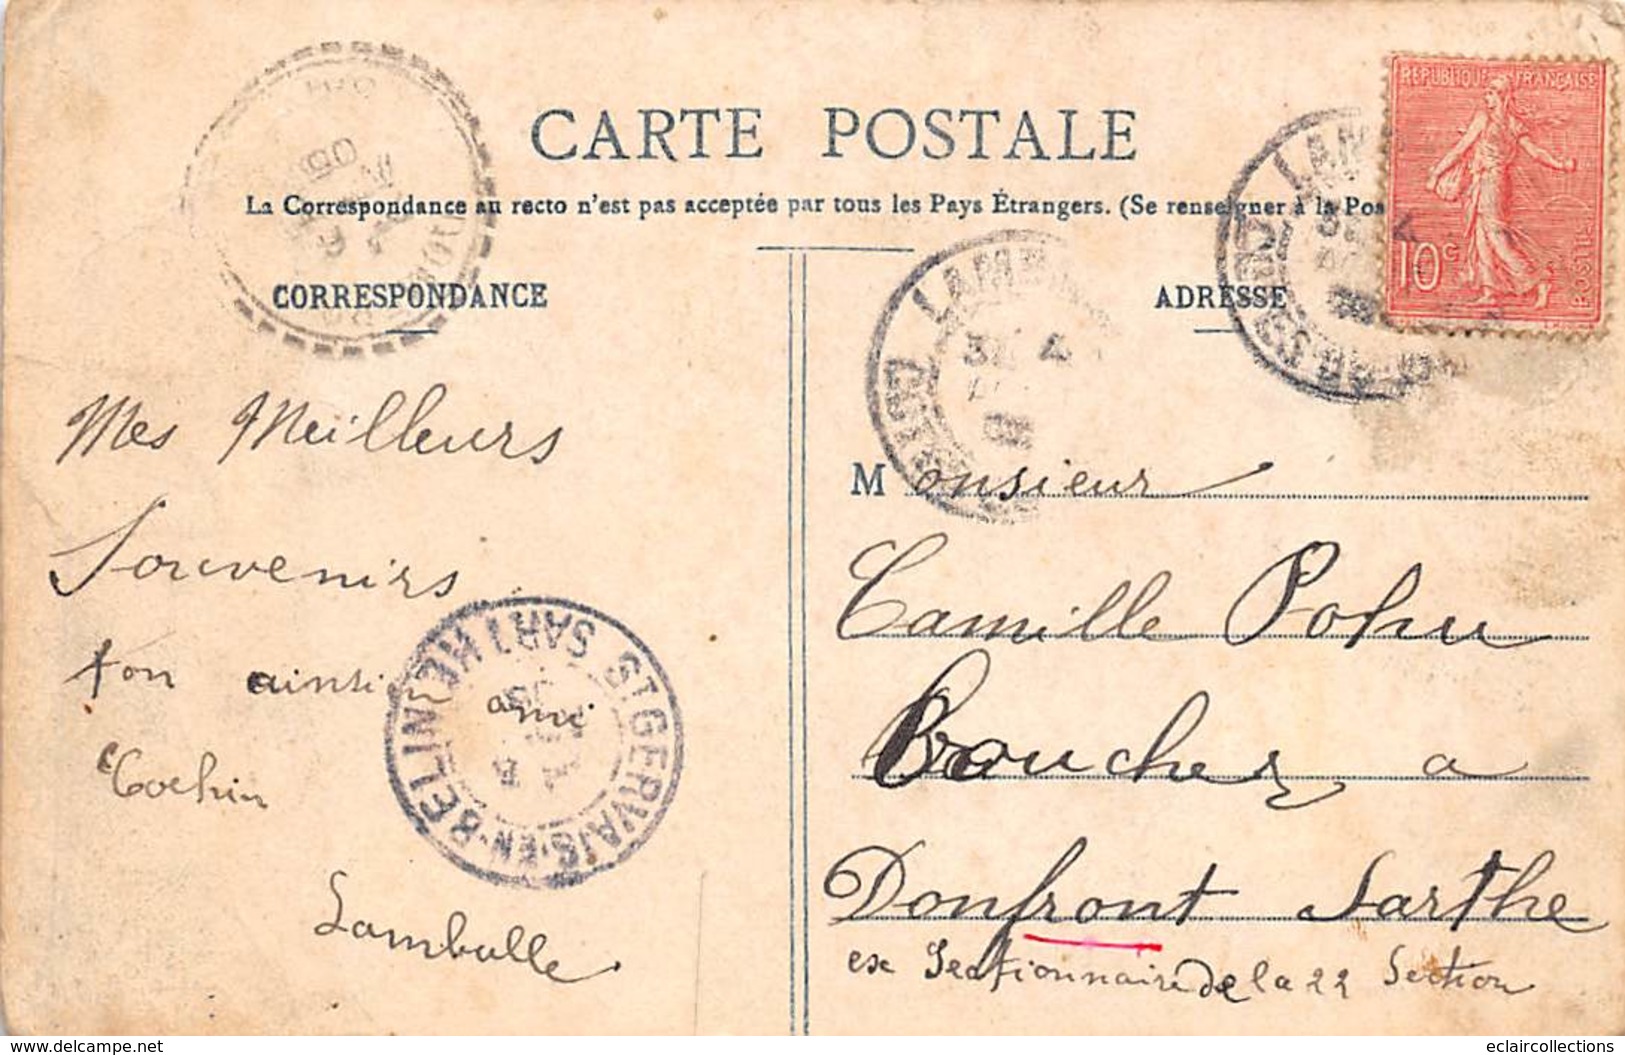 CARTE POSTALE
La Correspondance au recto n'est pas acceptée par tous les Pays Étrangers. (Se renseigner à la Pos
REPUBLIQUE FRANÇAISE
10c
POSTES
CORRESPONDANCE
ADRESSE
Mes Meilleurs
Souvenirs
ton ainsi ami
Cochin
Lamballe
Monsieur
Camille Pohu
Boucher a
Donfront Sarthe
ex Sectionnaire de la 22 Section
ST GERVAIS-EN-BELIN
SARTHE
My-este.com
eclaircollections